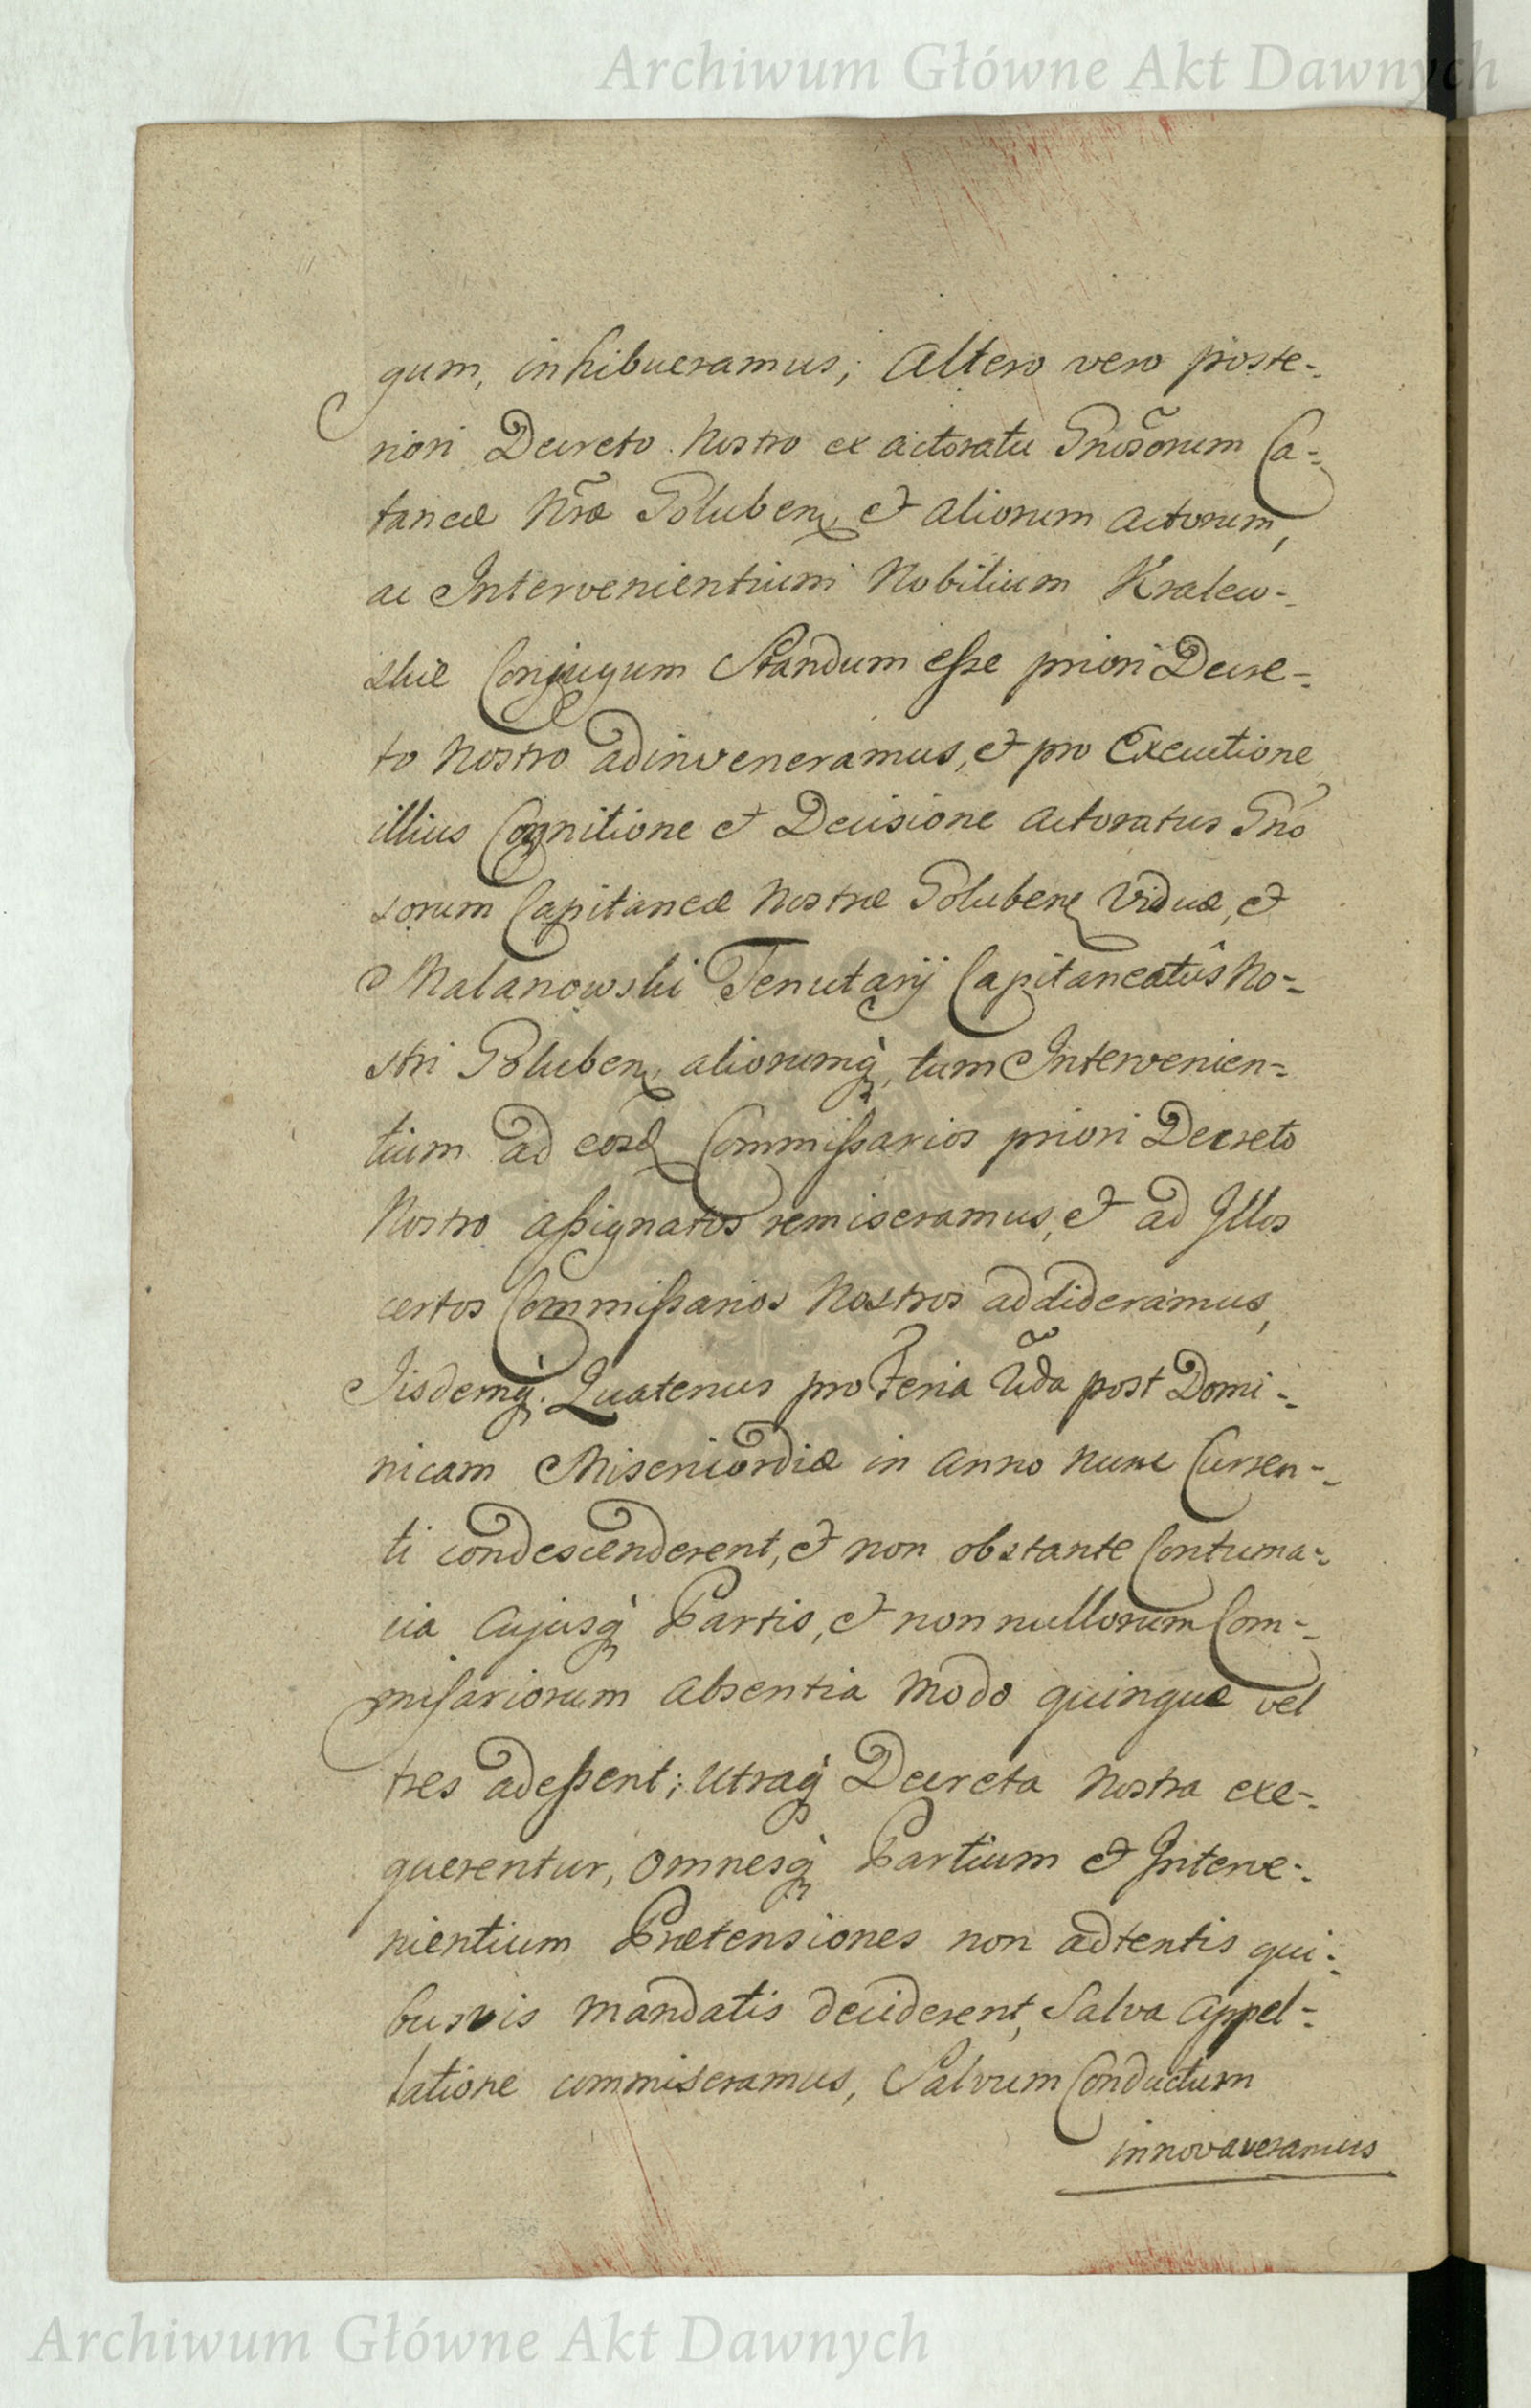 Archiwum Główne Akt Dawnych
gum, inhibueramus; Altero vero poste-
riori Decreto Nostro ex actoratu Gnosõrum Ca-
taneæ Nrae Goluben, et aliorum Actorum,
ac Intervenientium Nobilium Kralew-
skie Conjugum Standum esse priori Decre-
to Nostro adinveneramus, et pro Executione
illius Cognitione et Decisione Actoratus Gno
sorum Capitaneæ Nostræ Goluben Viduæ, et
Malanowski Tenutarij Capitaneatûs No-
stri Goluben, aliorumq, tum Intervenien-
tium ad eosd Commissarios priori Decreto
Nostro assignatos remiseramus, et ad Illos
certos Commissarios Nostros addideramus,
Iisdemq. Quatenus pro Feria IIda post Domi-
nicam Misericordiæ in Anno nunc Curren-
ti condescenderent, et non obstante Contuma-
cia Cujusq Partis, et non nullorum Com-
missariorum Absentia modo quinque vel
tres adessent; Utraq Decreta Nostra exe-
querentur, Omnesq Partium et Interve-
nientium Prætensiones non adtentis qui-
busvis mandatis deciderent, Salva Appel-
latione commiseramus, Salvum Conductum
innovaveramus
Archiwum Główne Akt Dawnych